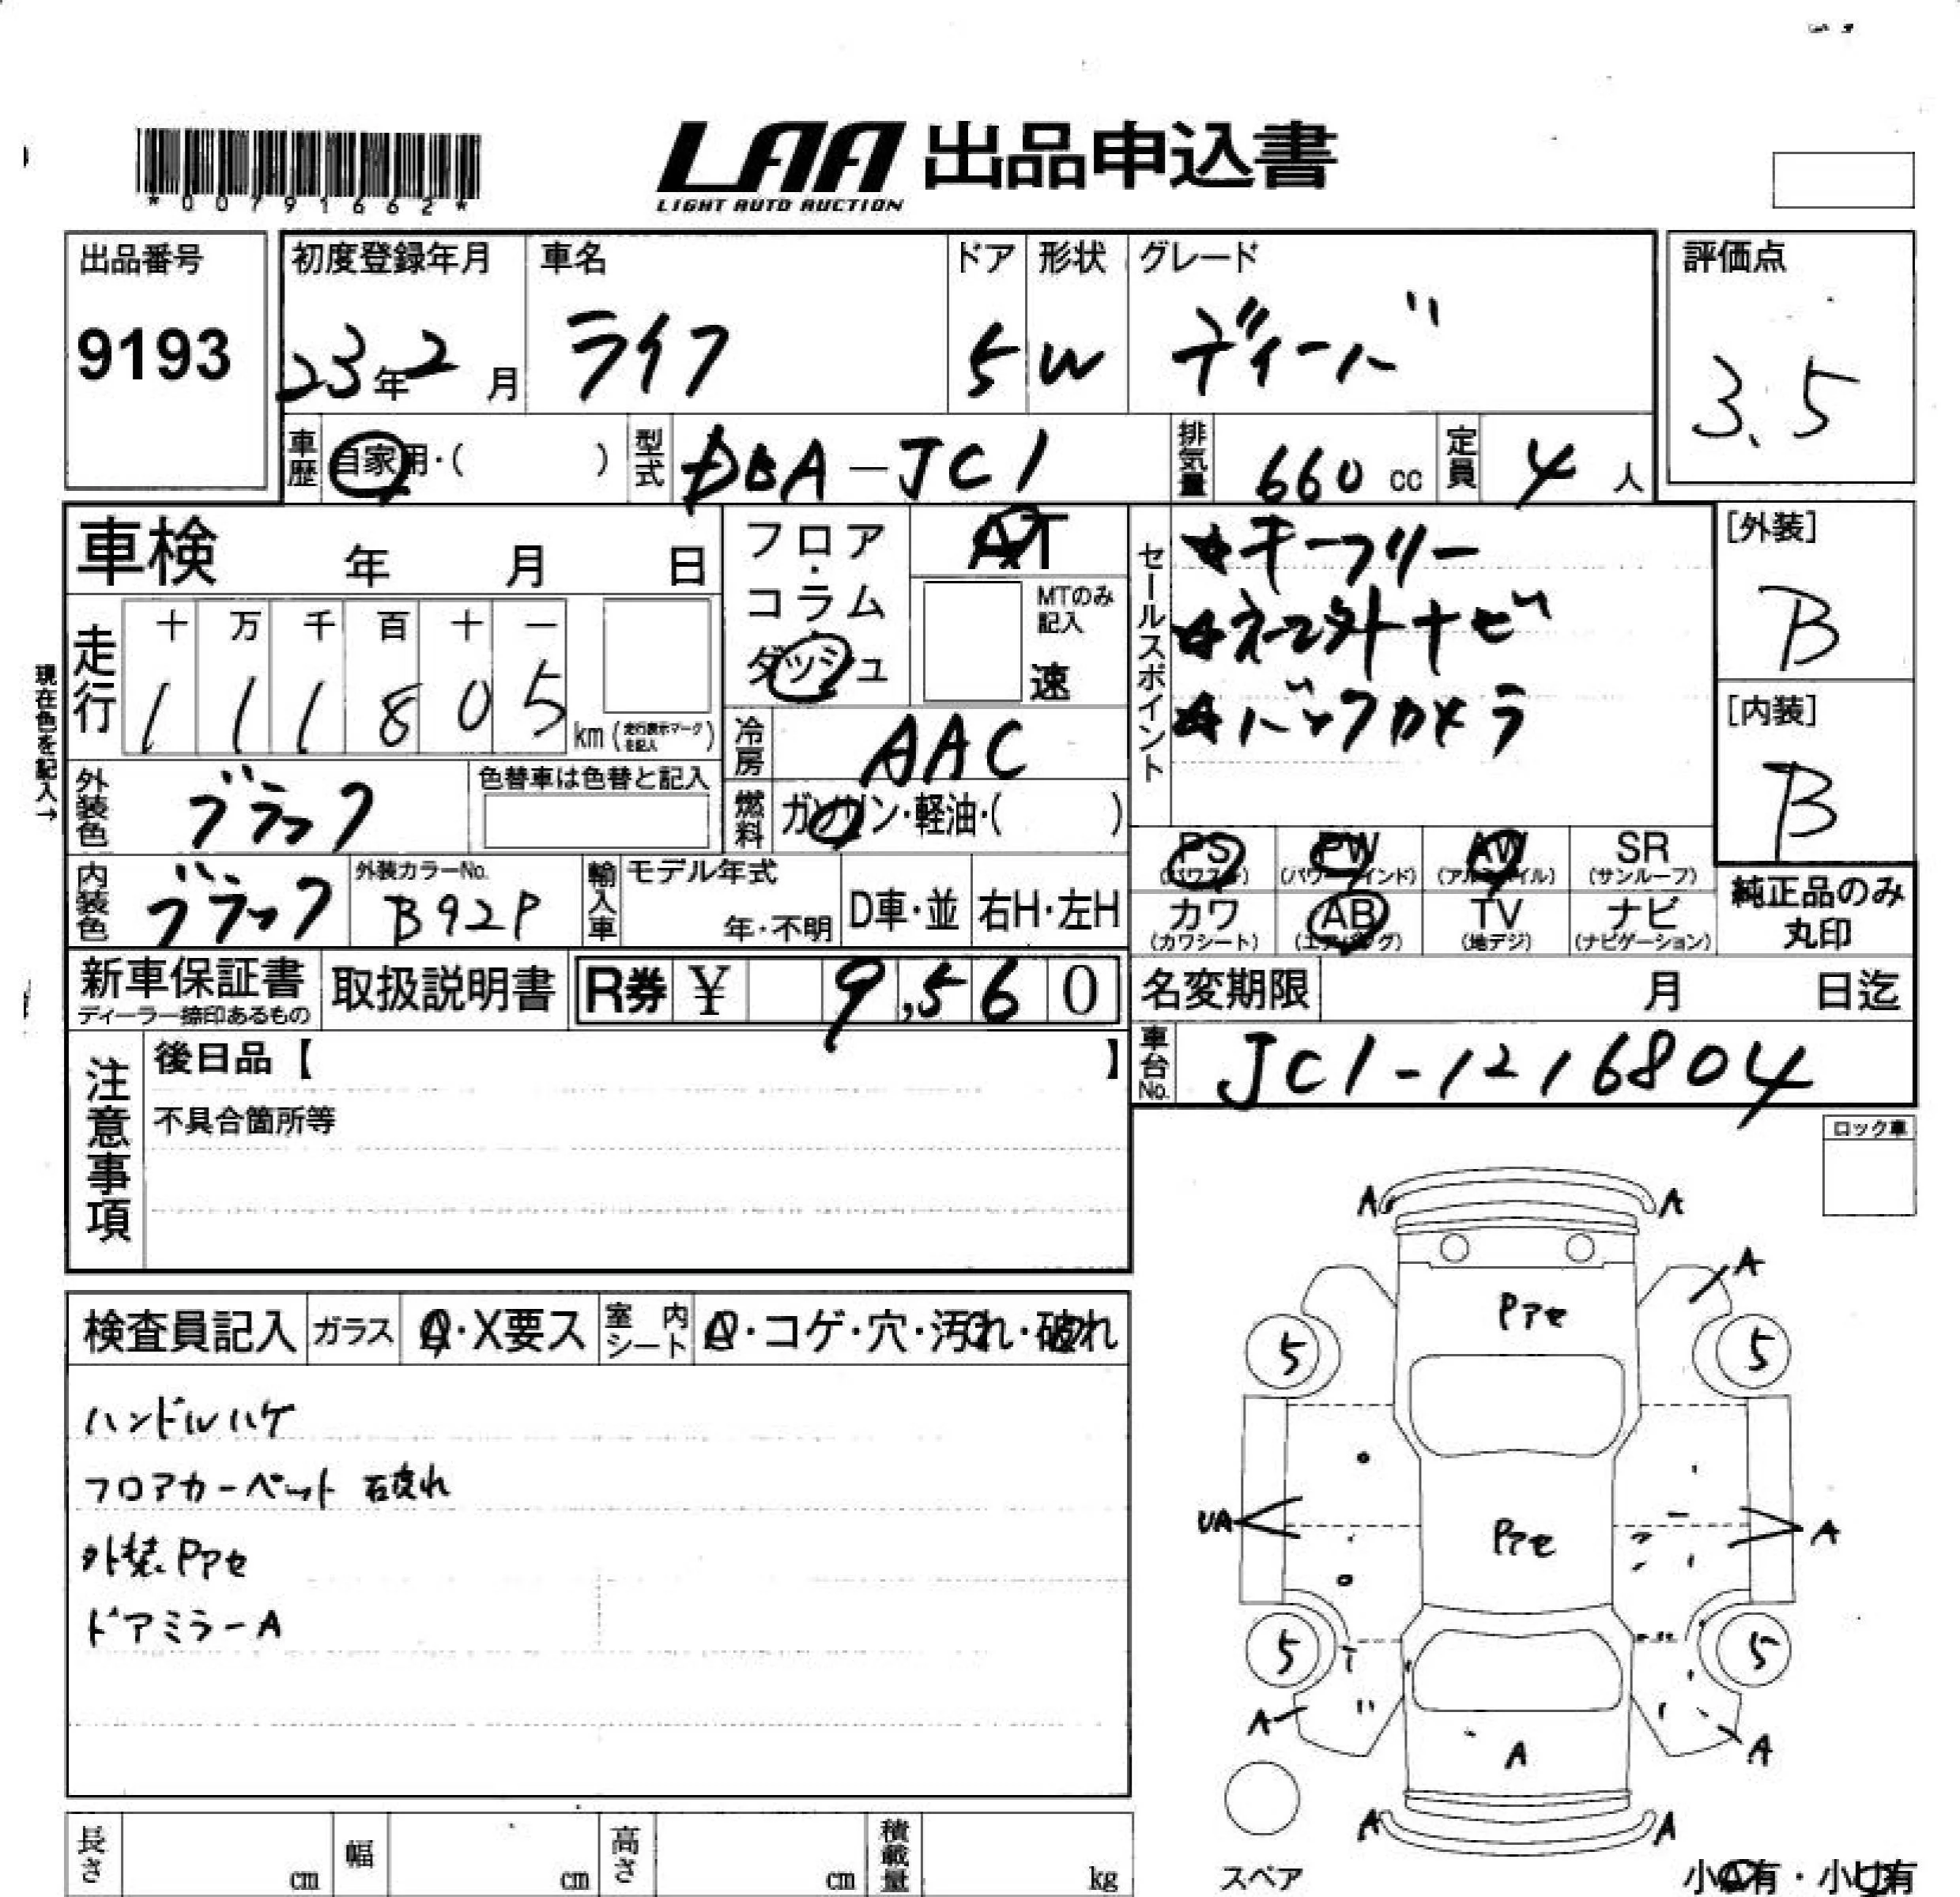 *00791662*
LAA 出品申込書
LIGHT AUTO AUCTION
出品番号
9193
初度登録年月
23年2月
車名
ライフ
ドア
5
形状
W
グレード
ディーバ
評価点
3.5
車歴
自家用・( )
型式
DBA-JC1
排気量
660 cc
定員
4 人
車検 年 月 日
フロア・コラム・ダッシュ
AT
MTのみ記入
速
セールスポイント
☆キーフリー
☆メモ外ナビ
☆バックカメラ
[外装]
B
[内装]
B
現在色を記入→
走行
十 万 千 百 十 一
1 1 1 8 0 5
km (走行表示マークを記入)
冷房
AAC
燃料
ガソリン・軽油・( )
外装色
ブラック
色替車は色替と記入
内装色
ブラック
外装カラーNo.
B92P
輸入車
モデル年式
年・不明
D車・並
右H・左H
PS
(パワステ)
PW
(パワーウインド)
AW
(アルミホイル)
SR
(サンルーフ)
カワ
(カワシート)
AB
(エアバッグ)
TV
(地デジ)
ナビ
(ナビゲーション)
純正品のみ
丸印
新車保証書
ディーラー捺印あるもの
取扱説明書
R券 ¥ 9,560
名変期限 月 日迄
車台No.
JC1-1216804
注意事項
後日品【 】
不具合箇所等
ロック車
検査員記入
ガラス
A・X要ス
室内シート
A・コゲ・穴・汚れ・破れ
ハンドルハゲ
フロアカーペット 破れ
外装Pアセ
ドアミラーA
A A
A
Pアセ
5 5
UA
Pアセ
A
5 5
A
A
A
A A
スペア
小A有・小U有
長さ cm
幅 cm
高さ cm
積載量 kg